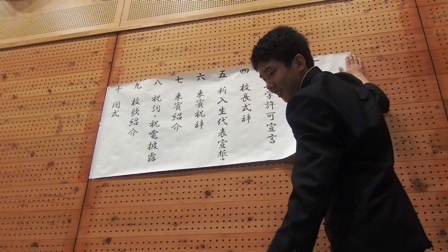 学許可宣言
四 校長式辞
五 新入生代表宣誓
六 来賓祝辞
七 来賓紹介
八 祝詞・祝電披露
九 校歌紹介
十 閉式